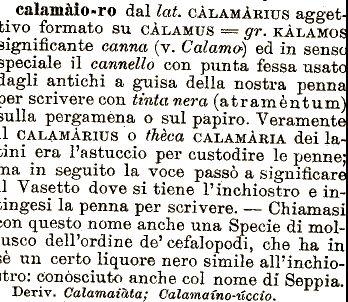 calamàio-ro dal lat. CÀLAMÀRIUS agget-
tivo formato su CÀLAMUS = gr. KÀLAMOS
significante canna (v. Calamo) ed in senso
speciale il cannello con punta fessa usato
dagli antichi a guisa della nostra penna
per scrivere con tinta nera (atramèntum)
sulla pergamena o sul papiro. Veramente
il CALAMÀRIUS o thèca CALAMÀRIA dei la-
tini era l'astuccio per custodire le penne;
ma in seguito la voce passò a significare
il Vasetto dove si tiene l'inchiostro e in-
tingesi la penna per scrivere. — Chiamasi
con questo nome anche una Specie di mol-
lusco dell'ordine de' cefalopodi, che ha in
sè un certo liquore nero simile all'inchio-
stro: conòsciuto anche col nome di Seppia.
Deriv. Calamaiàta; Calamaíno-úccio.